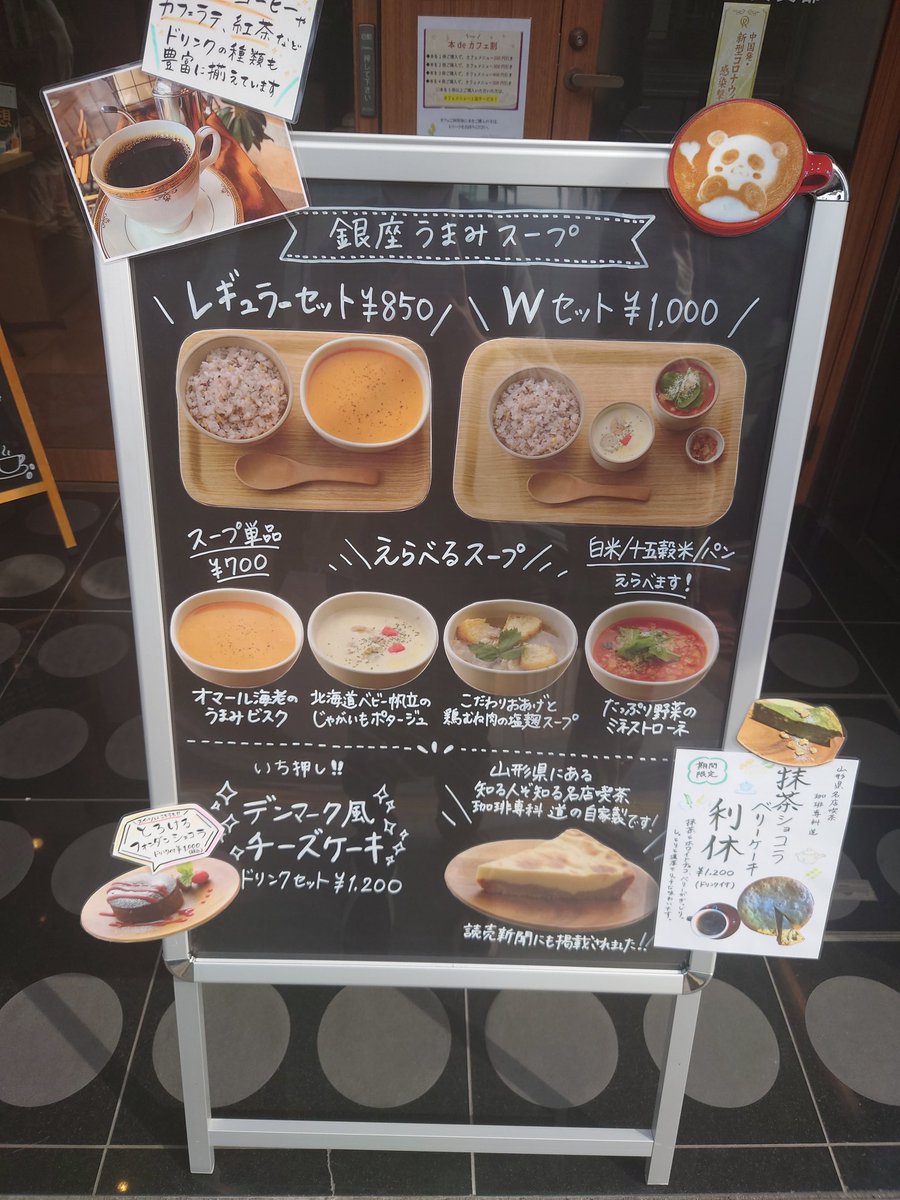 コーヒーや
カフェラテ、紅茶など
ドリンクの種類も
豊富に揃えています
押して下さい
本 de カフェ割
中国発・
新型コロナウ
感染
銀座うまみスープ
レギュラーセット ¥850
Wセット ¥1,000
スープ単品
¥700
えらべるスープ
白米/十五穀米/パン
えらべます!
オマール海老の
うまみビスク
北海道ベビー帆立の
じゃがいもポタージュ
こだわりおあげと
鶏むね肉の塩麹スープ
たっぷり野菜の
ミネストローネ
いち押し!!
デンマーク風
チーズケーキ
ドリンクセット ¥1.200
山形県にある
知る人ぞ知る名店喫茶
珈琲専科 道の自家製です!
読売新聞にも掲載されました!!
とろける
フォンダンショコラ
期間
限定
山形県名店喫茶
珈琲専科 道
抹茶ショコラ
ベリーケーキ
利休
¥1.200
(ドリンク付)